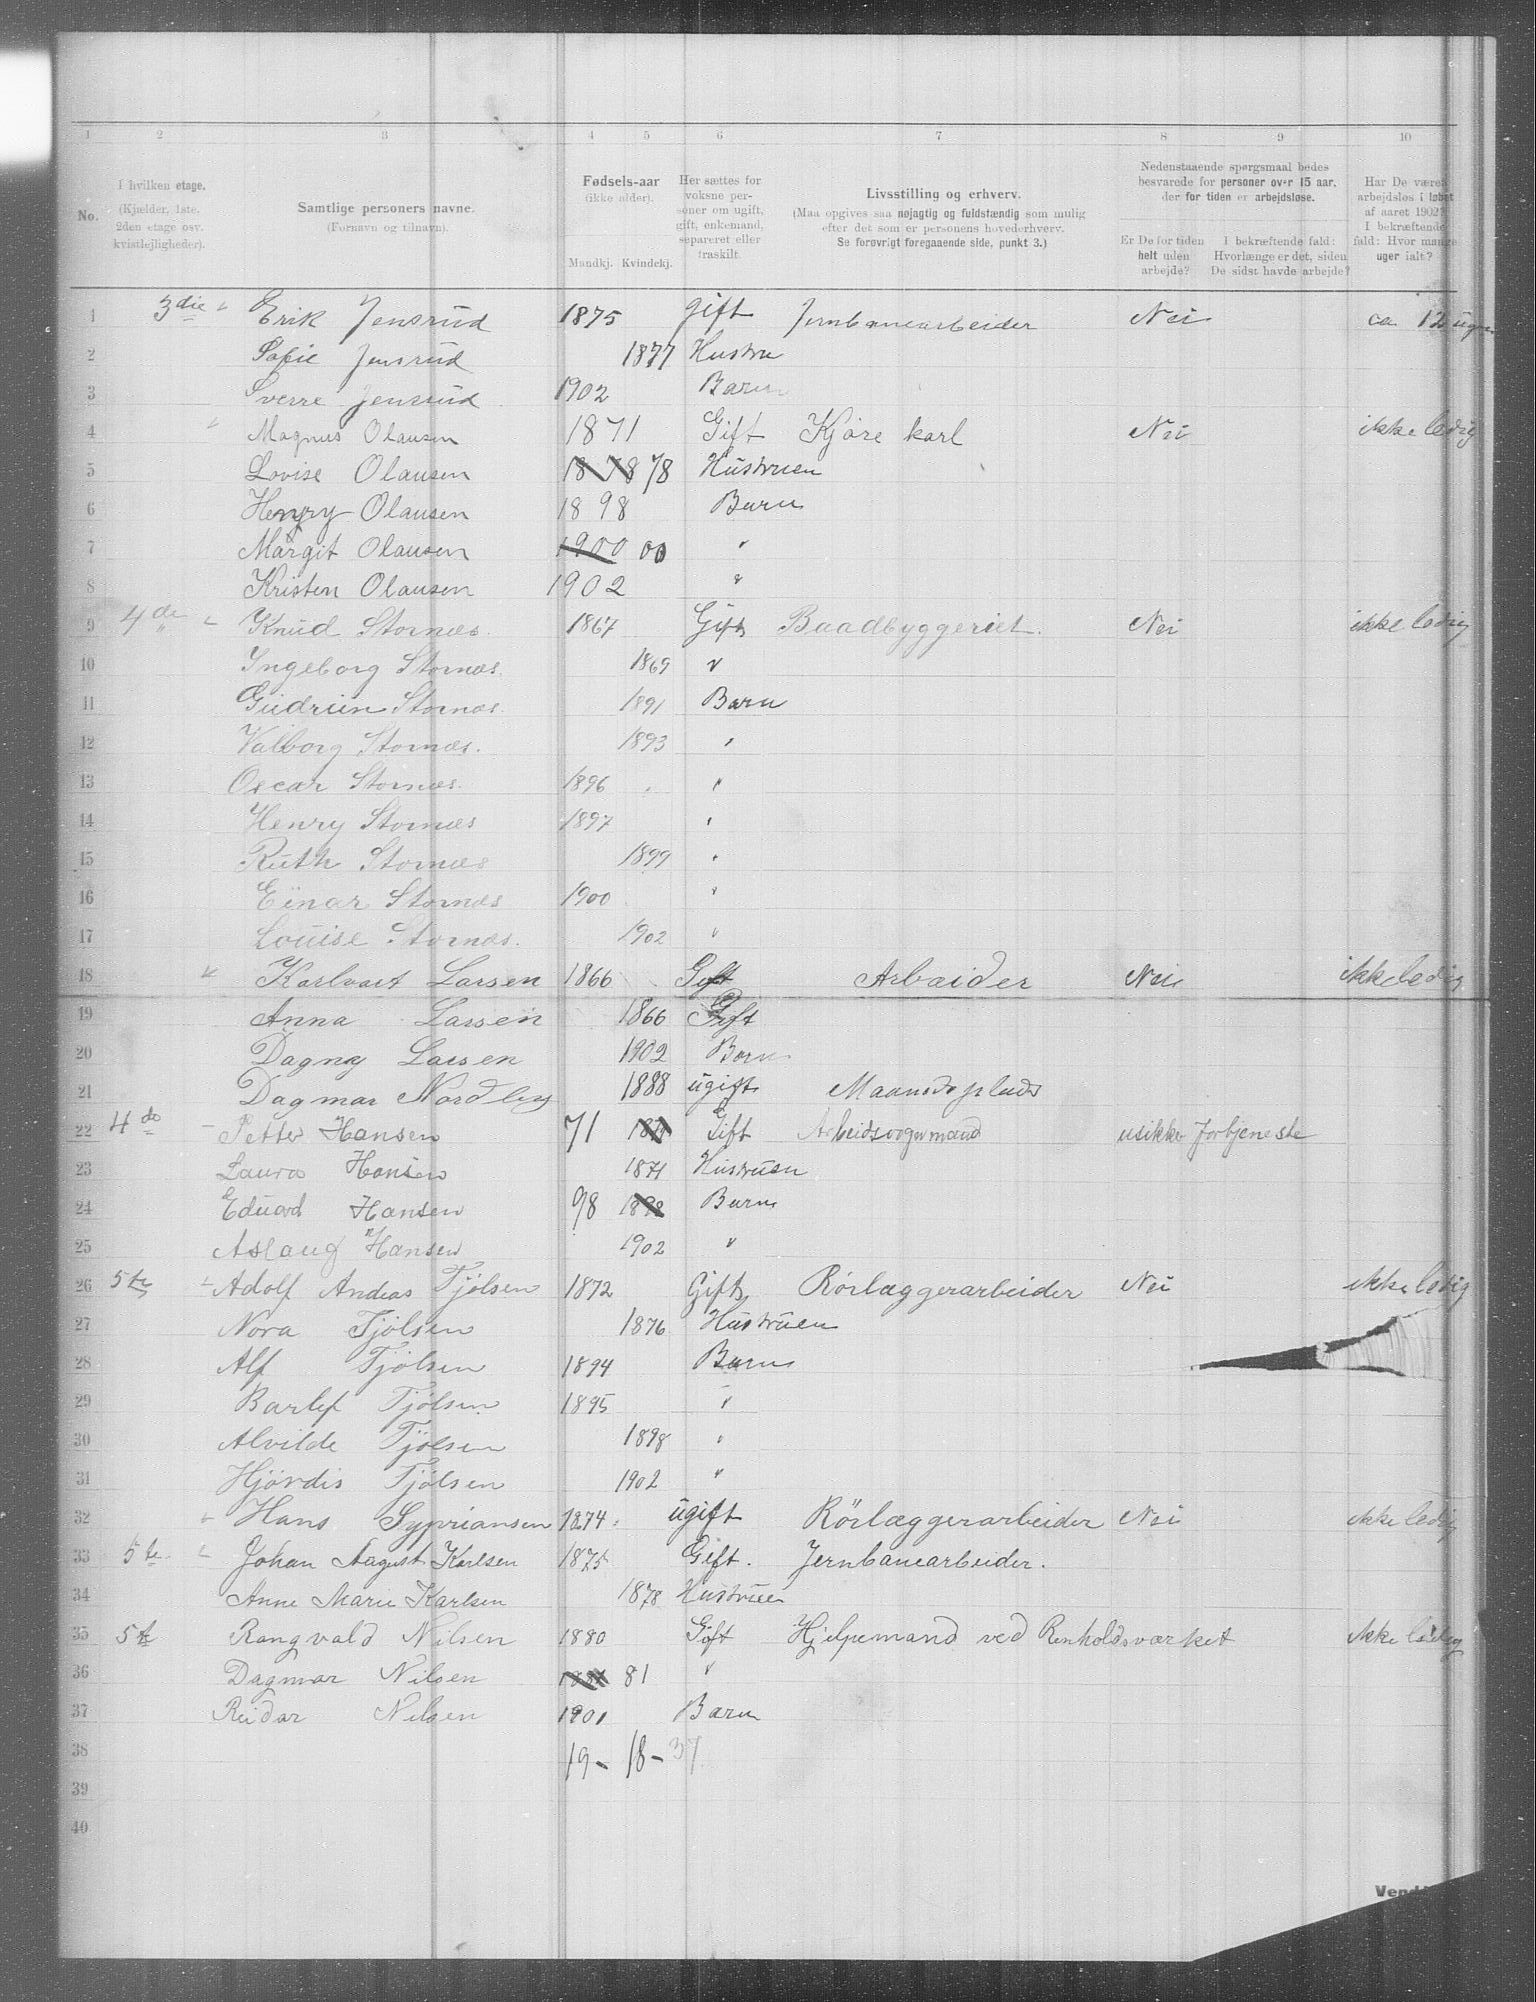 1 2 3 4 5 6 7 8 9 10
No.
I hvilken etage.
(Kjælder, 1ste, 2den etage osv. kvistlejligheder).
Samtlige personers navne.
(Fornavn og tilnavn).
Fødsels-aar
(ikke alder).
Mandkj. Kvindekj.
Her sættes for voksne per- soner om ugift, gift, enkemand, separeret eller fraskilt.
Livsstilling og erhverv.
(Maa opgives saa nøjagtig og fuldstændig som mulig efter det som er personens hovederhverv. Se forøvrigt foregaaende side, punkt 3.)
Nedenstaaende spørgsmaal bedes besvarede for personer over 15 aar, der for tiden er arbejdsløse.
Er De for tiden helt uden arbejde?
I bekræftende fald: Hvorlænge er det, siden De sidst havde arbejde?
Har De været arbejdsløs i løbet af aaret 1902? I bekræftende fald: Hvor mange uger ialt?
1 3die Erik Jensrud 1875 gift Jernbanearbeider Nei ca 12 uger
2 Sofie Jensrud 1877 Hustru
3 Sverre Jensrud 1902 Barn
4 Magnus Olausen 1871 Gift Kjøre karl Nei ikke ledig
5 Lovise Olausen 1878 78 Hustruen
6 Henry Olausen 1898 Barn
7 Margit Olausen 1900 00 "
8 Kristen Olausen 1902 "
9 4de Knud Stornæs 1867 Gift Baadbyggeriet. Nei ikke ledig
10 Ingeborg Stornæs. 1869 "
11 Gudrun Stornæs. 1891 Barn
12 Valborg Stornæs. 1893 "
13 Oscar Stornæs. 1896 "
14 Henry Stornæs 1897 "
15 Ruth Stornæs 1899 "
16 Einar Stornæs 1900 "
17 Louise Stornæs. 1902 "
18 Karlvart Larsen 1866 Gift Arbaider Nei ikke ledig
19 Anna Larsen 1866 Gift
20 Dagny Larsen 1902 Born
21 Dagmar Nordley 1888 ugift Maanedsplads
22 4de Petter Hansen 71 Gift Arbeidsvognmand usikker fortjeneste
23 Laura Hansen 1871 Hustruen
24 Eduard Hansen 98 1898 Barn
25 Aslaug Hansen 1902 "
26 5te Adolf Andreas Tjølsen 1872 Gift Rörlæggerarbeider Nei ikke ledig
27 Nora Tjølsen 1876 Hustruen
28 Alf Tjølsen 1894 Barn
29 Barlef Tjølsen 1895 "
30 Alvilde Tjølsen 1898 "
31 Hjördis Tjølsen 1902 "
32 Hans Sypriansen 1874 ugift Rörlæggerarbeider Nei ikke ledig
33 5te Johan August Karlsen 1875 Gift. Jernbanearbeider.
34 Anne Marie Karlsen 1878 Hustruen
35 5te Rangvald Nilsen 1880 Gift Hjelpemand ved Renholdsværket ikke ledig
36 Dagmar Nilsen 1881 81 "
37 Reidar Nilsen 1901 Barn
38 19 - 18 - 37
39
40
Vend